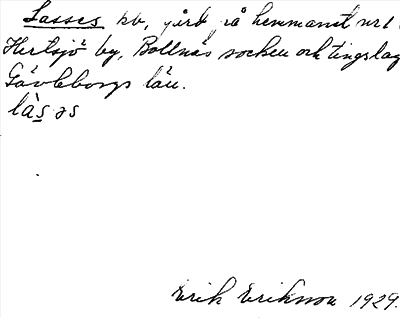 Lasses kb, gård på hemmanet nr 1
Hertsjö by, Bollnäs socken och tingslag
Gävleborgs län.
làs əs
Erik Eriksson 1929.